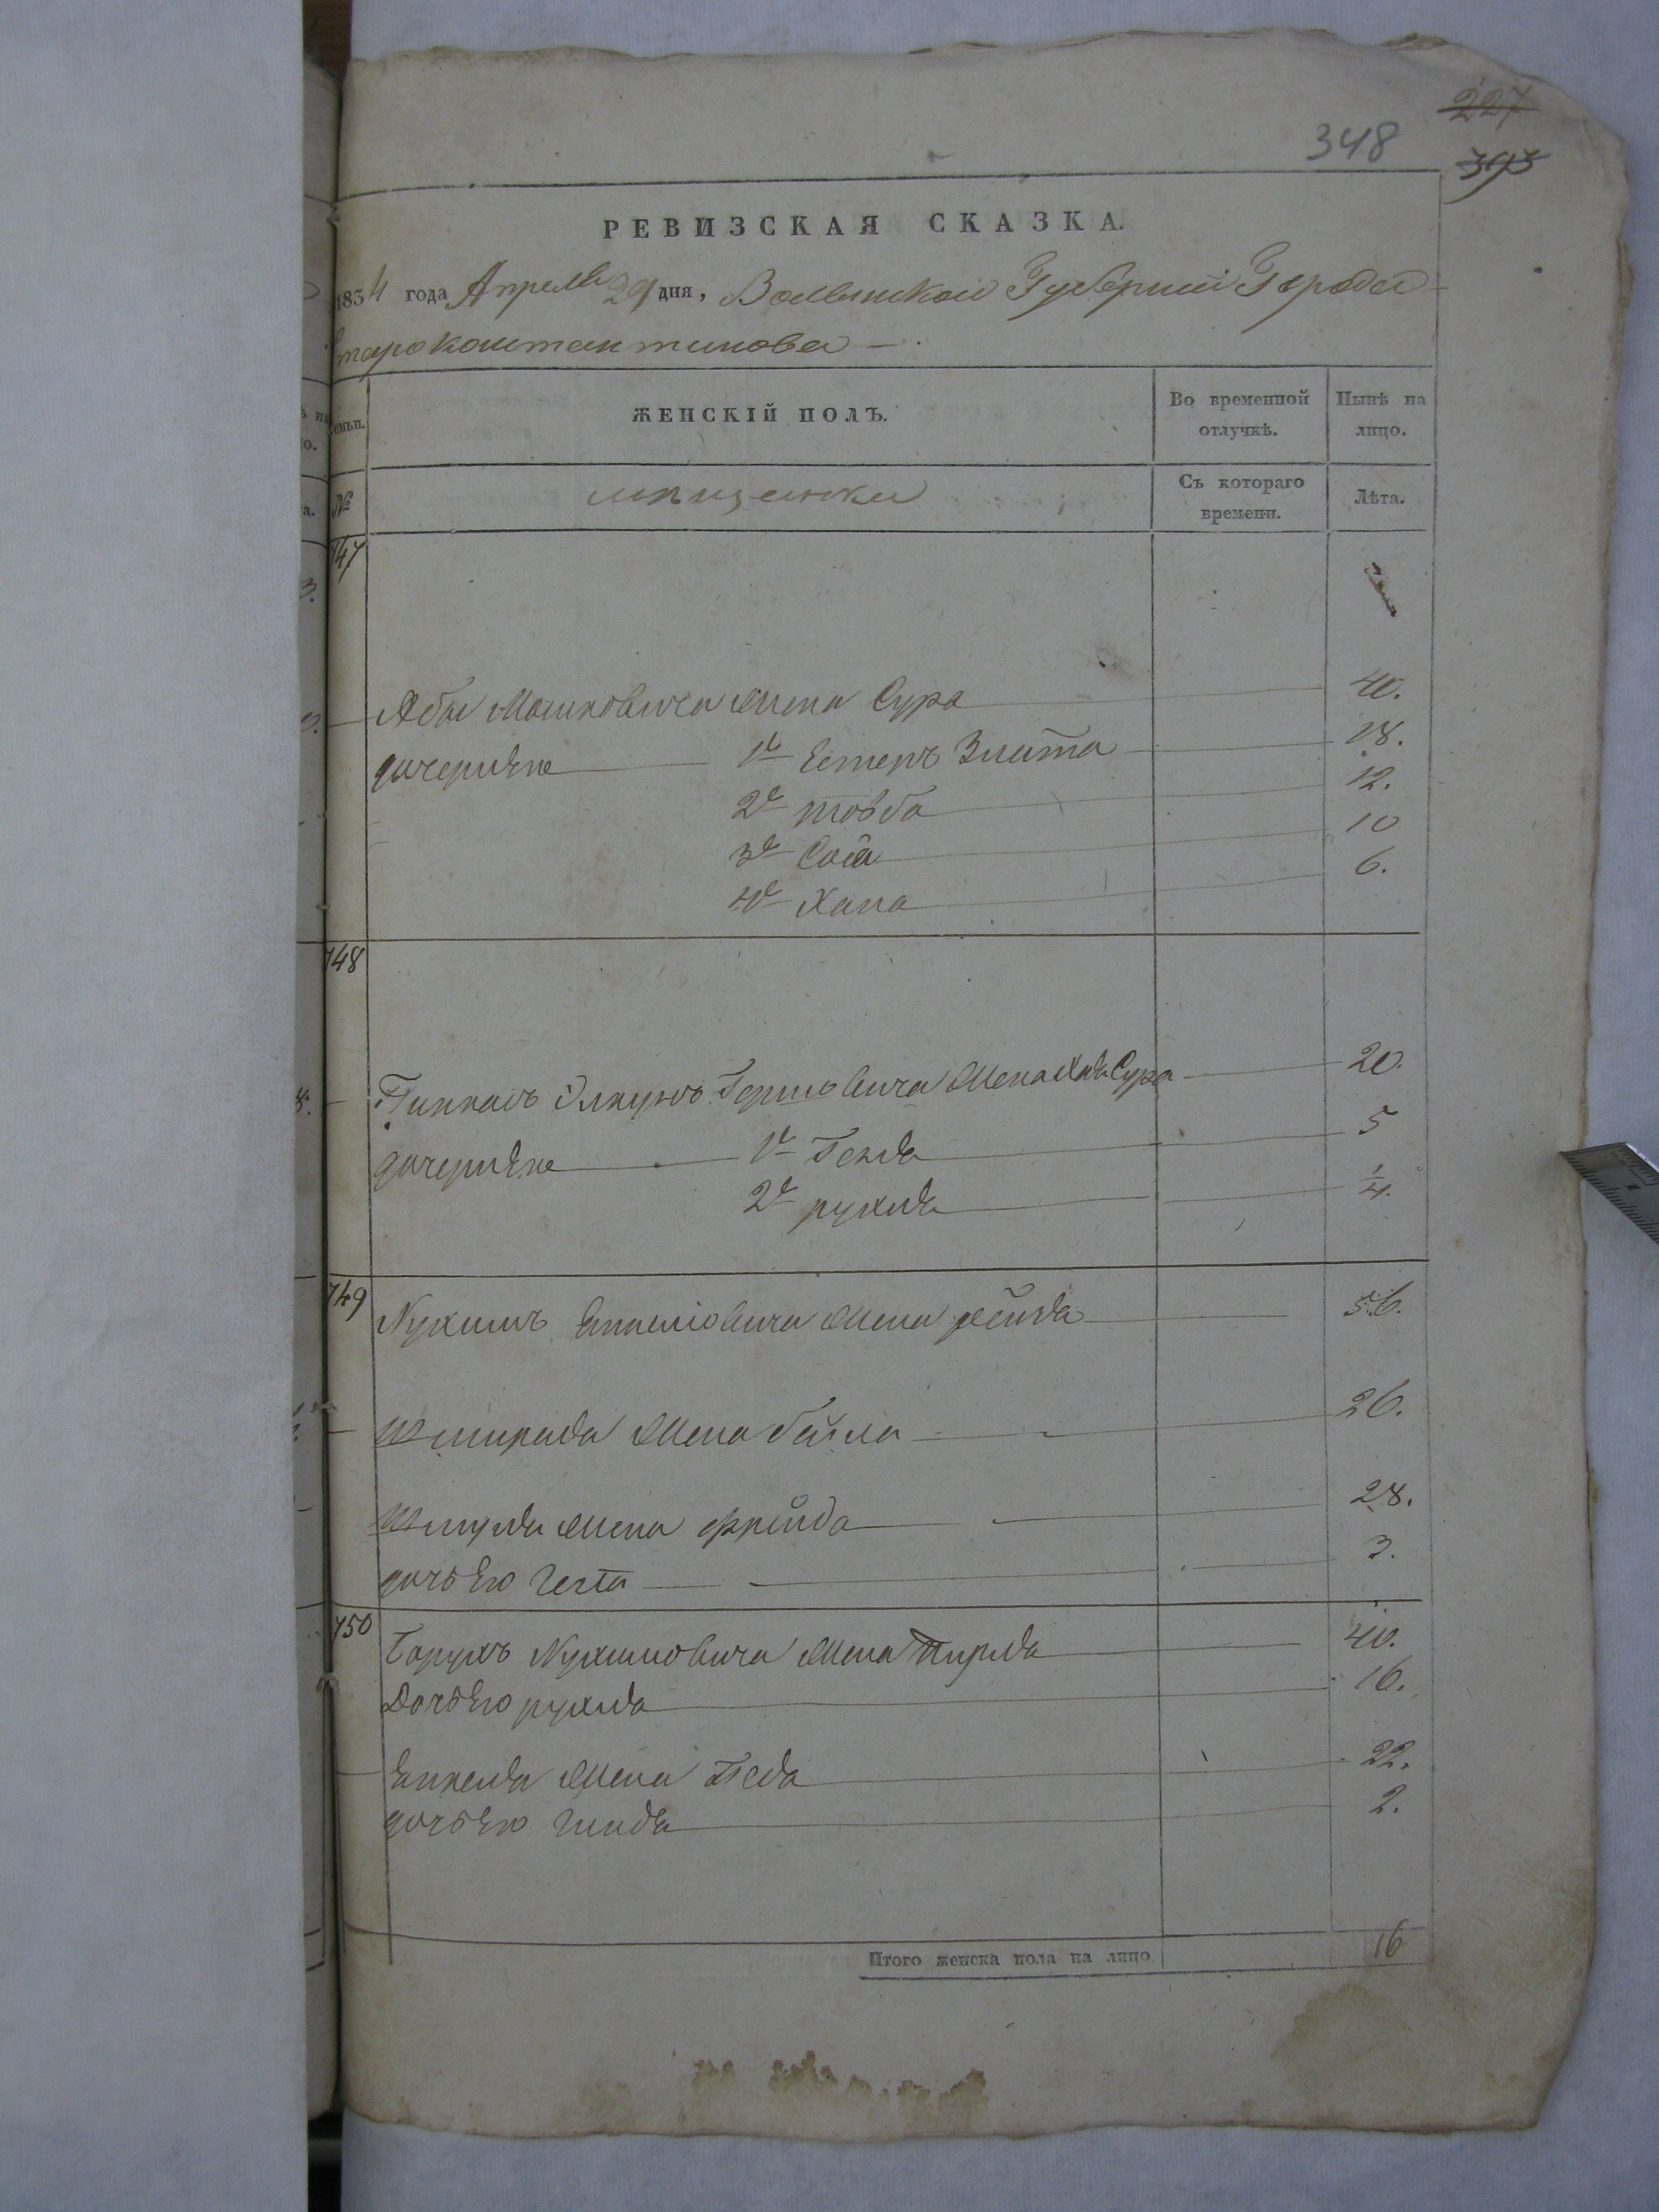 227
348
393
РЕВИЗСКАЯ СКАЗКА.
1834 года Апреля 29 дня, Волынской Губернии Города
Староконстантинова
Семьи. ЖЕНСКІЙ ПОЛЪ. Во временной отлучкѣ. Нынѣ на лицо.
№ мѣщанки Съ котораго времени. Лѣта.
747
Абы Мошковича жена Сура 40.
дочери Его 1я Естеръ Злата 18.
2я товба 12.
3я Сося 10
4я Хана 6.
748
Гершковича жена Хая Сура 20.
дочери Его 1я Генда 5
2я рухля 1/4.
749
Нухимъ жена 56.
жена бейла 26.
Шмуля жена фрейда 28.
дочь Его 3.
750
Борухъ Нухимовича жена 40.
Дочь Его рухля 16.
жена 22.
дочь Его 2.
Итого женска пола на лицо 16